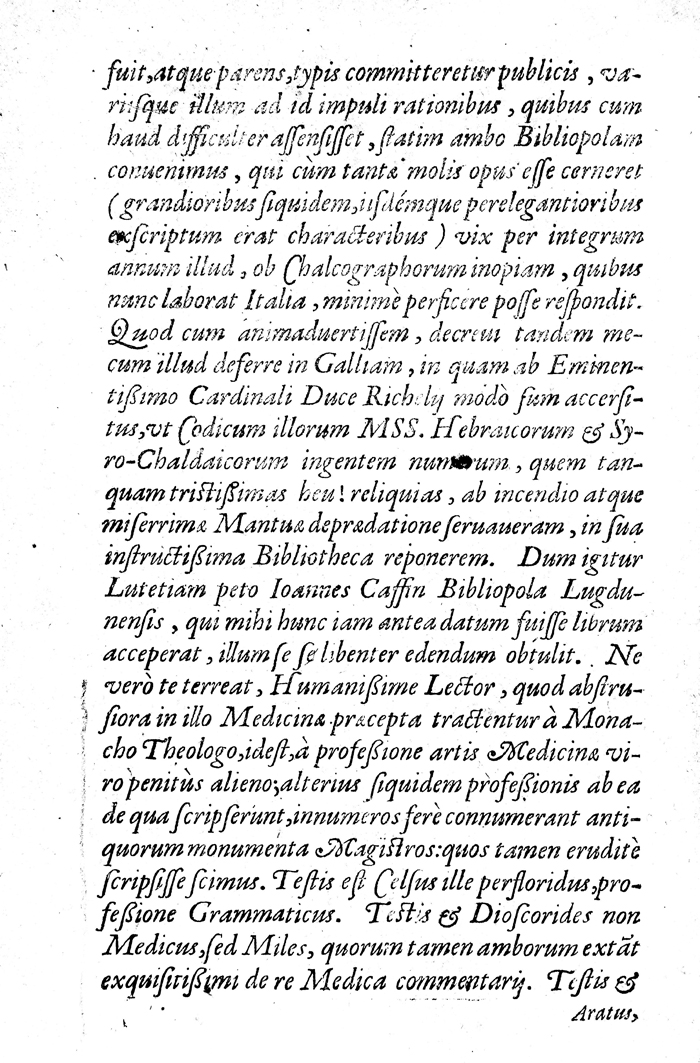 fuit, atque parens, typis committeretur publicis, va-
riisque illum ad id impuli rationibus, quibus cum
haud difficulter assensisset, statim ambo Bibliopolam
conuenimus, qui cùm tantæ molis opus esse cerneret
(grandioribus siquidem, iisdémque perelegantioribus
exscriptum erat characteribus) vix per integrum
annum illud, ob Chalcographorum inopiam, quibus
nunc laborat Italia, minimè perficere posse respondit.
Quod cum animaduertissem, decreui tandem me-
cum illud deferre in Galliam, in quam ab Eminen-
tißimo Cardinali Duce Richely modò sum accersi-
tus, vt Codicum illorum MSS. Hebraicorum & Sy-
ro-Chaldaicorum ingentem numerum, quem tan-
quam tristißimas heu! reliquias, ab incendio atque
miserrima Mantuæ deprædatione seruaueram, in sua
instructißima Bibliotheca reponerem. Dum igitur
Lutetiam peto Ioannes Caffin Bibliopola Lugdu-
nensis, qui mihi hunc iam antea datum fuisse librum
acceperat, illum se se libenter edendum obtulit. Ne
verò te terreat, Humanißime Lector, quod abstru-
siora in illo Medicinæ præcepta tractentur à Mona-
cho Theologo, idest, à profeßione artis Medicinæ vi-
ro penitùs alieno; alterius siquidem profeßionis ab ea
de qua scripserunt, innumeros ferè connumerant anti-
quorum monumenta Magistros: quos tamen eruditè
scripsisse scimus. Testis est Celsus ille perfloridus, pro-
feßione Grammaticus. Testis & Dioscorides non
Medicus, sed Miles, quorum tamen amborum extãt
exquisitißimi de re Medica commentarij. Testis &
Aratus,